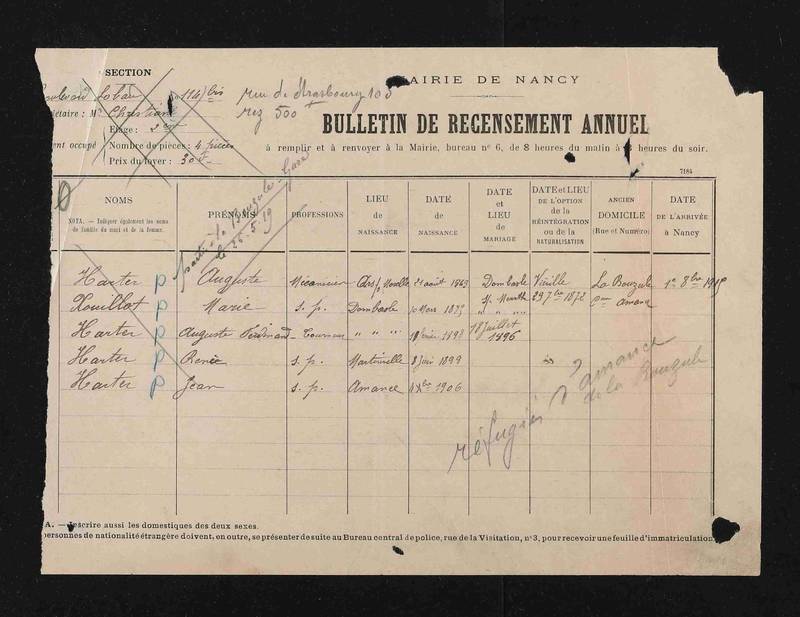 SECTION
Lobau No 114 bis
MAIRIE DE NANCY
rue de Strasbourg 103
rez 500
étaire : M. Christian
Étage : 2
BULLETIN DE RECENSEMENT ANNUEL
ent occupé
Nombre de pièces : 4 pièces
à remplir et à renvoyer à la Mairie, bureau nº 6, de 8 heures du matin à heures du soir.
Prix du loyer :
7184
partis à la Bouzule - Gare
le 26.5.19
NOMS
NOTA. — Indiquer également les noms de famille du mari et de la femme.
PRÉNOMS
PROFESSIONS
LIEU de NAISSANCE
DATE de NAISSANCE
DATE et LIEU de MARIAGE
DATE et LIEU DE L'OPTION de la RÉINTÉGRATION ou de la NATURALISATION
ANCIEN DOMICILE (Rue et Numéro)
DATE DE L'ARRIVÉE à Nancy
Harter p Auguste Mécanicien Ars s/ Moselle 21 août 1863 Dombasle Vieille La Bouzule
Rouillot p Marie s. p. Dombasle 10 Mars 1875 s/ Meurthe 29 7bre 1872 Cne Amance
Harter p Auguste Ferdinand Tourneur " " " 18 juillet 1896
Harter p Renée s. p. 8 Juin 1899
Harter p Jean s. p. Amance Xbre 1906
réfugiés d'amance
de la Bouzule
A. — Inscrire aussi les domestiques des deux sexes.
personnes de nationalité étrangère doivent, en outre, se présenter de suite au Bureau central de police, rue de la Visitation, nº 3, pour recevoir une feuille d'immatriculation